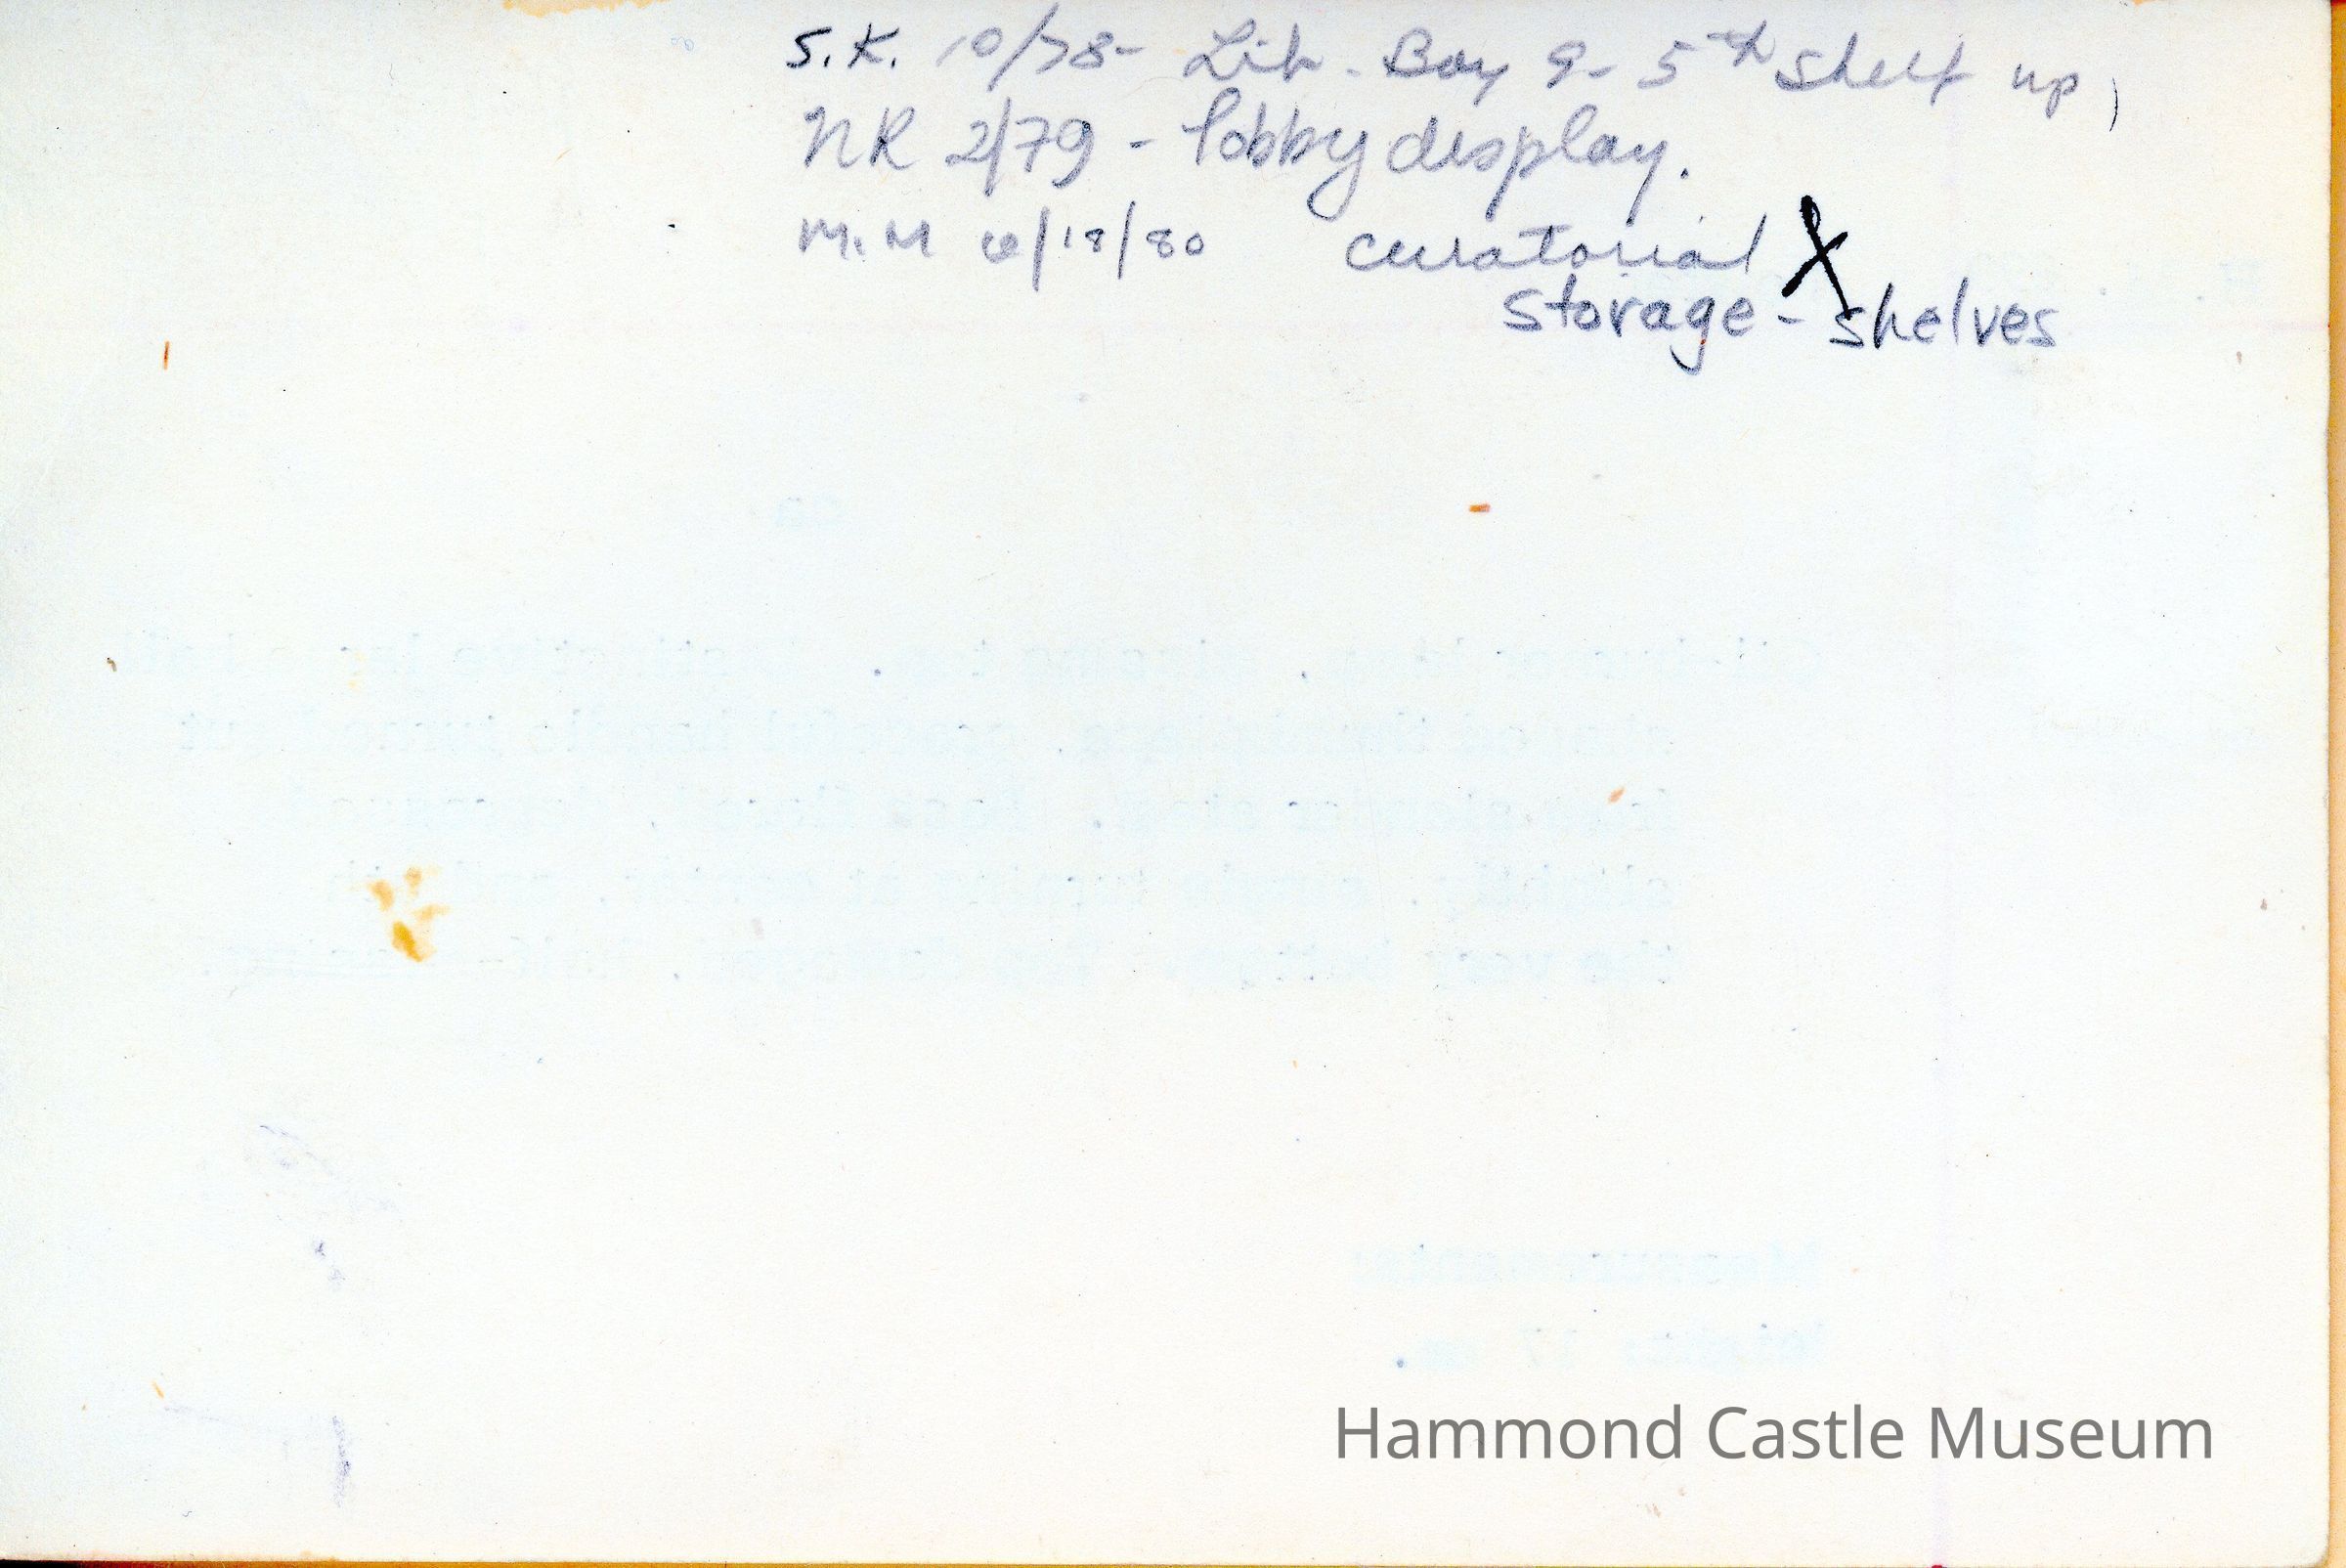 S.K. 10/78- Lib. Bay 9- 5th Shelf up,
NR 2/79 - lobby display.
M.M /18/80 curatorial X
storage - shelves
Hammond Castle Museum